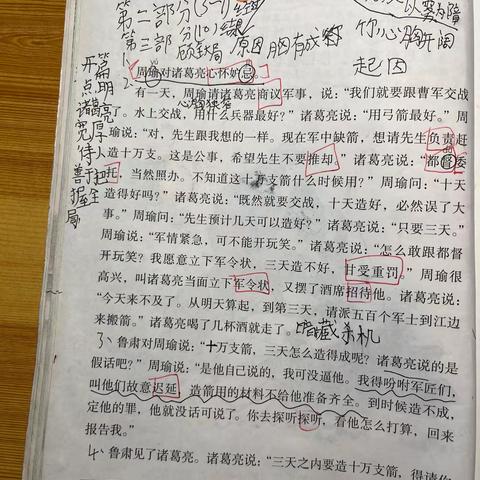 第二部分(3-
第三部分(10)
顾全大局 原因 胸有成竹
你心胸开阔
起因
周瑜对诸葛亮心怀妒忌。
心胸狭窄
有一天，周瑜请诸葛亮商议军事，说：“我们就要跟曹军交战
了。水上交战，用什么兵器最好？”诸葛亮说：“用弓箭最好。”周
瑜说：“对，先生跟我想的一样。现在军中缺箭，想请先生负责赶
造十万支。这是公事，希望先生不要推却。”诸葛亮说：“都督委
托，当然照办。不知道这十万支箭什么时候用？”周瑜问：“十天
造得好吗？”诸葛亮说：“既然就要交战，十天造好，必然误了大
事。”周瑜问：“先生预计几天可以造好？”诸葛亮说：“只要三天。”
周瑜说：“军情紧急，可不能开玩笑。”诸葛亮说：“怎么敢跟都督
开玩笑？我愿意立下军令状，三天造不好，甘受重罚。”周瑜很
高兴，叫诸葛亮当面立下军令状，又摆了酒席招待他。诸葛亮说：
“今天来不及了。从明天起，到第三天，请派五百个军士到江边
来搬箭。”诸葛亮喝了几杯酒就走了。
暗藏杀机
鲁肃对周瑜说：“十万支箭，三天怎么造得成呢？诸葛亮说的是
假话吧？”周瑜说：“是他自己说的，我可没逼他。我得吩咐军匠们，
叫他们故意迟延，造箭用的材料不给他准备齐全。到时候造不成，
定他的罪，他就没话可说了。你去探听探听，看他怎么打算，回来
报告我。”
鲁肃见了诸葛亮。诸葛亮说：“三天之内要造十万支箭，得请你